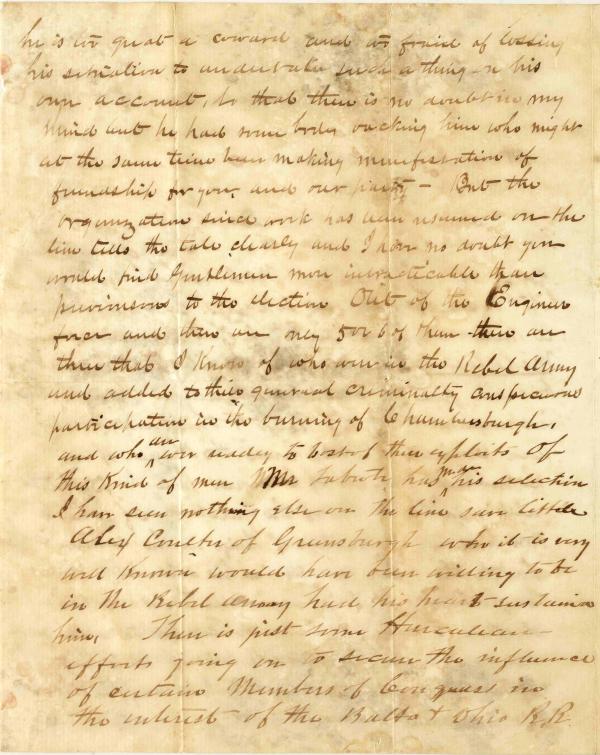 he is to great a coward and to fraid of lossing
his setiation to undertake such a thing on his
own account, so that there is no doubt in my
mind but he had some body backing him who might
at the same time been making minifestation of
friendship for you, and our party — But the
organization since work has been resumed on the
line tells the tale clearly and I have no doubt you
would find Gentlemen more impracticable than
previous to the election Out of the Engineer
force and there are only 5 or 6 of them there are
three that I know of who were in the Rebel Army
and added to their general criminalty conspicuous
participation in the burning of Chambersburgh,
and who are ever readey to bost of their exploits Of
this Kind of men Mr has made his selection
I have seen nothing else on the line save little
Alex Coulter of Greensburgh who it is very
well Known would have been willing to be
in the Rebel Army had his heart sustained
him, There is just some Hurculean
efforts going on to secure the influence
of certain Members of Congress in
the interest of the Balto & Ohio R.R.